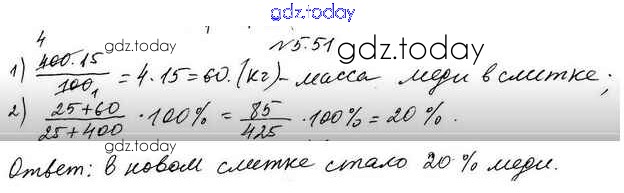 gdz.today
№5.51
gdz.today gdz.today
1) 400·15/100 = 4·15=60.(кг)- масса меди в слитке;
2) 25+60/25+400 ·100% = 85/425 ·100%=20%.
gdz.today gdz.today
Ответ: в новом слитке стало 20% меди.